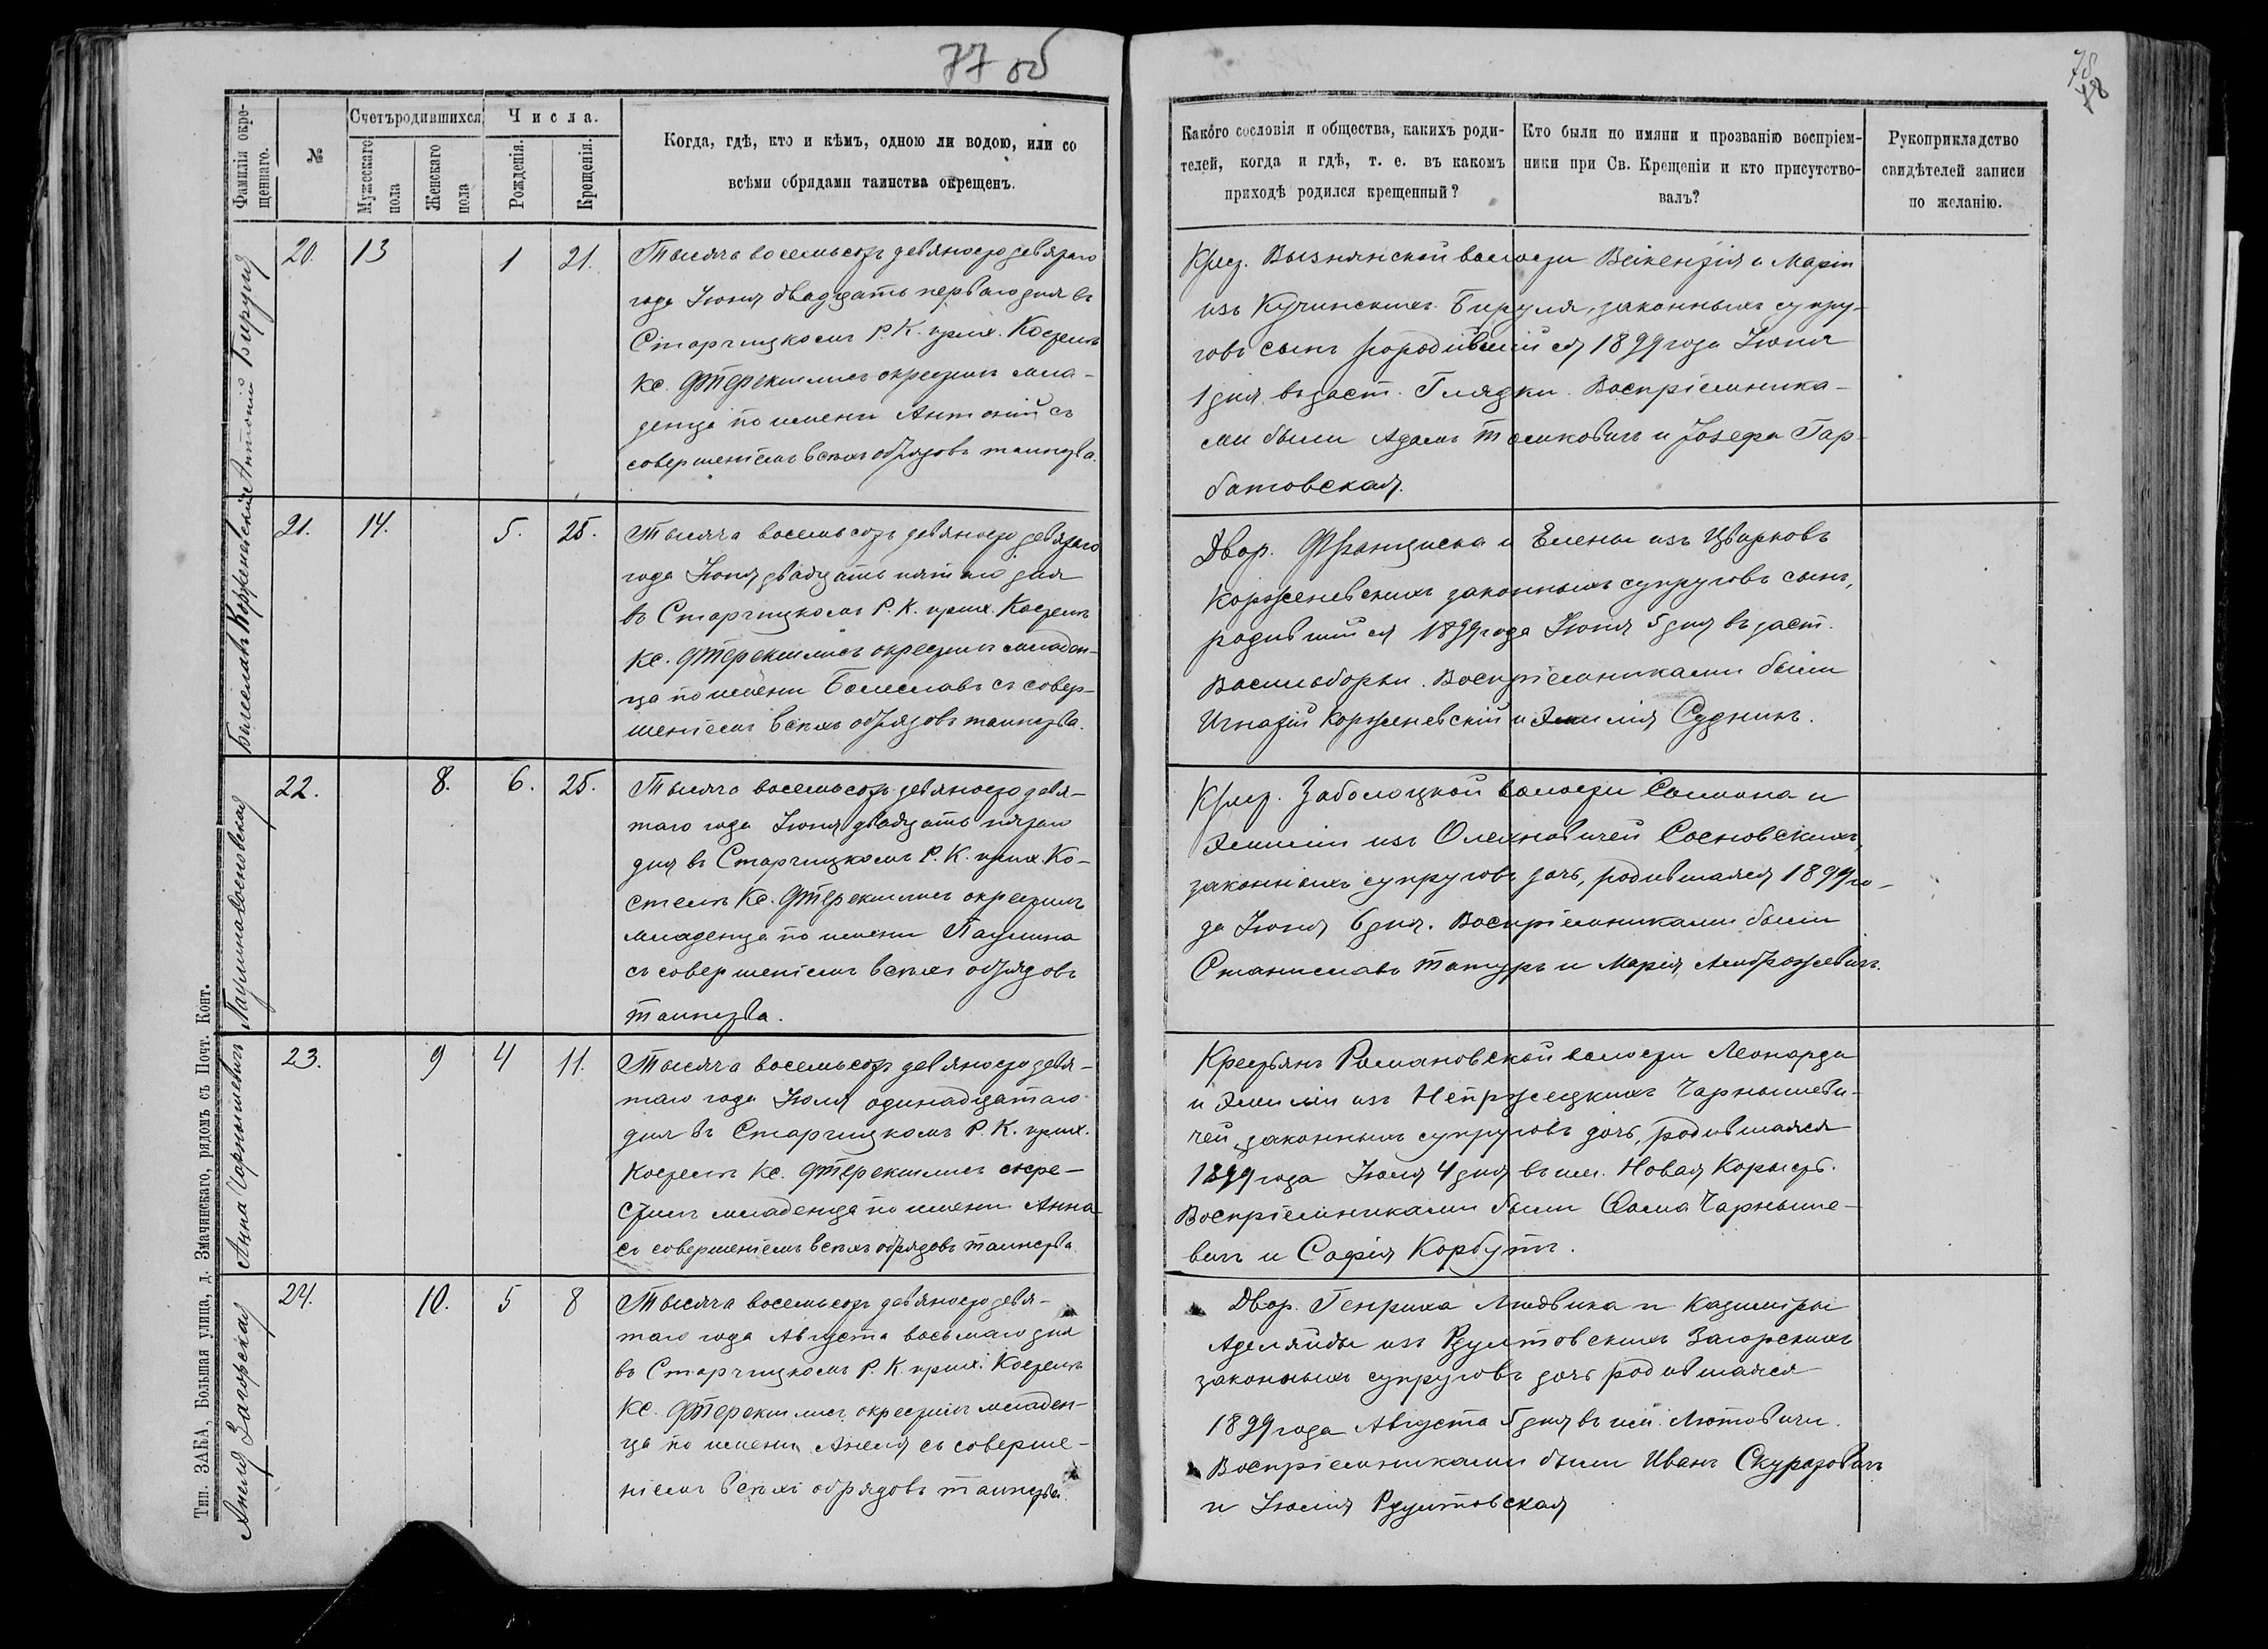 77 об
78
78
Фамилія окре-
щеннаго.
№
Счетъ родившихся
Мужескаго
пола
Женскаго
пола
Числа.
Рожденія.
Крещенія.
Когда, гдѣ, кто и кѣмъ, одною ли водою, или со
всѣми обрядами таинства окрещенъ.
Какого сословія и общества, какихъ роди-
телей, когда и гдѣ, т. е. въ какомъ
приходѣ родился крещенный?
Кто были по имяни и прозванію воспріем-
ники при Св. Крещеніи и кто присутство-
валъ?
Рукоприкладство
свидѣтелей записи
по желанію.
Антоній Бируля
20. 13 1 21.
Тысяча восемьсотъ девяносто девятаго
года Іюня двадцать перваго дня въ
Старчицкомъ Р. К. прих. Костелѣ
Кс. окрестилъ мла-
денца по имени Антоній съ
совершеніемъ всѣхъ обрядовъ таинства.
Крест. Вызнянской волости Викентія и Маріи
изъ Кучинскихъ Бируля, законныхъ супру-
говъ сынъ родившійся 1899 года Іюня
1 дня въ заст. Глядки. Воспріемника-
ми были Адамъ Томковичъ и Јозефа Гар-
батовская.
Болеславъ Корженевскій
21. 14. 5. 25.
Тысяча восемьсотъ девяносто девятаго
года Іюня двадцать пятаго дня
въ Старчицкомъ Р. К. прих. Костелѣ
Кс. окрестилъ младен-
ца по имени Болеславъ съ совер-
шеніемъ всѣхъ обрядовъ таинства.
Двор. Франциска и Елены изъ Цвирковъ
Корженевскихъ законныхъ супруговъ сынъ,
родившійся 1899 года Іюня 5 дня въ заст.
Восмиборки. Воспріемниками были
Игнатій Корженевскій и Эмилія Судникъ.
Паулина Сосновская
22. 8. 6. 25.
Тысяча восемьсотъ девяносто девя-
таго года Іюня двадцать пятаго
дня въ Старчицкомъ Р. К. прих. Ко-
стелѣ Кс. окрестилъ
младенца по имени Паулина
съ совершеніемъ всѣхъ обрядовъ
таинства.
Крест. Заболоцкой волости Семиона и
Эмиліи изъ Олехновичей Сосновскихъ,
законныхъ супруговъ дочь, родившаяся 1899 го-
да Іюня 6 дня. Воспріемниками были
Станиславъ Татуръ и Марія Амброжевичъ.
Анна Чарнышевичъ
23. 9 4 11.
Тысяча восемьсотъ девяносто девя-
таго года Іюля одинадцатаго
дня въ Старчицкомъ Р. К. прих.
Костелѣ Кс. окре-
стилъ младенца по имени Анна
съ совершеніемъ всѣхъ обрядовъ таинства.
Крестьянъ Романовской волости Леонарда
и Эмиліи изъ Непржецкихъ Чарнышеви-
чей, законныхъ супруговъ дочь, родившаяся
1899 года Іюля 4 дня въ им. Новая Корысть.
Воспріемниками были Ѳома Чарныше-
вичъ и Софія Корбутъ.
Анеля Загорская
24. 10. 5 8
Тысяча восемьсотъ девяносто девя-
таго года Августа восьмаго дня
въ Старчицкомъ Р. К. прих. Костелѣ
Кс. окрестилъ младен-
ца по имени Анеля съ соверше-
ніемъ всѣхъ обрядовъ таинства.
Двор. Генриха Людвика и Казиміры
Аделяиды изъ Рдултовскихъ Загорскихъ
законныхъ супруговъ дочь родившаяся
1899 года Августа 5 дня въ им. Лютовичи.
Воспріемниками были Иванъ Скуратовичъ
и Іюлія Рдултовская
Тип. ЗАКА, Большая улица, д. Змачинскаго, рядомъ съ Почт. Конт.